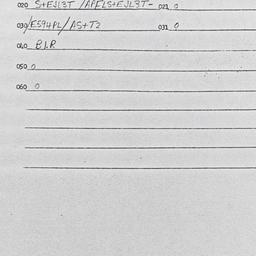 020 S+EJL3T /APELS+EJL3T- 021 0
030 /E594PL/AS+T2 031 0
040 B.I.R
050 0
060 0